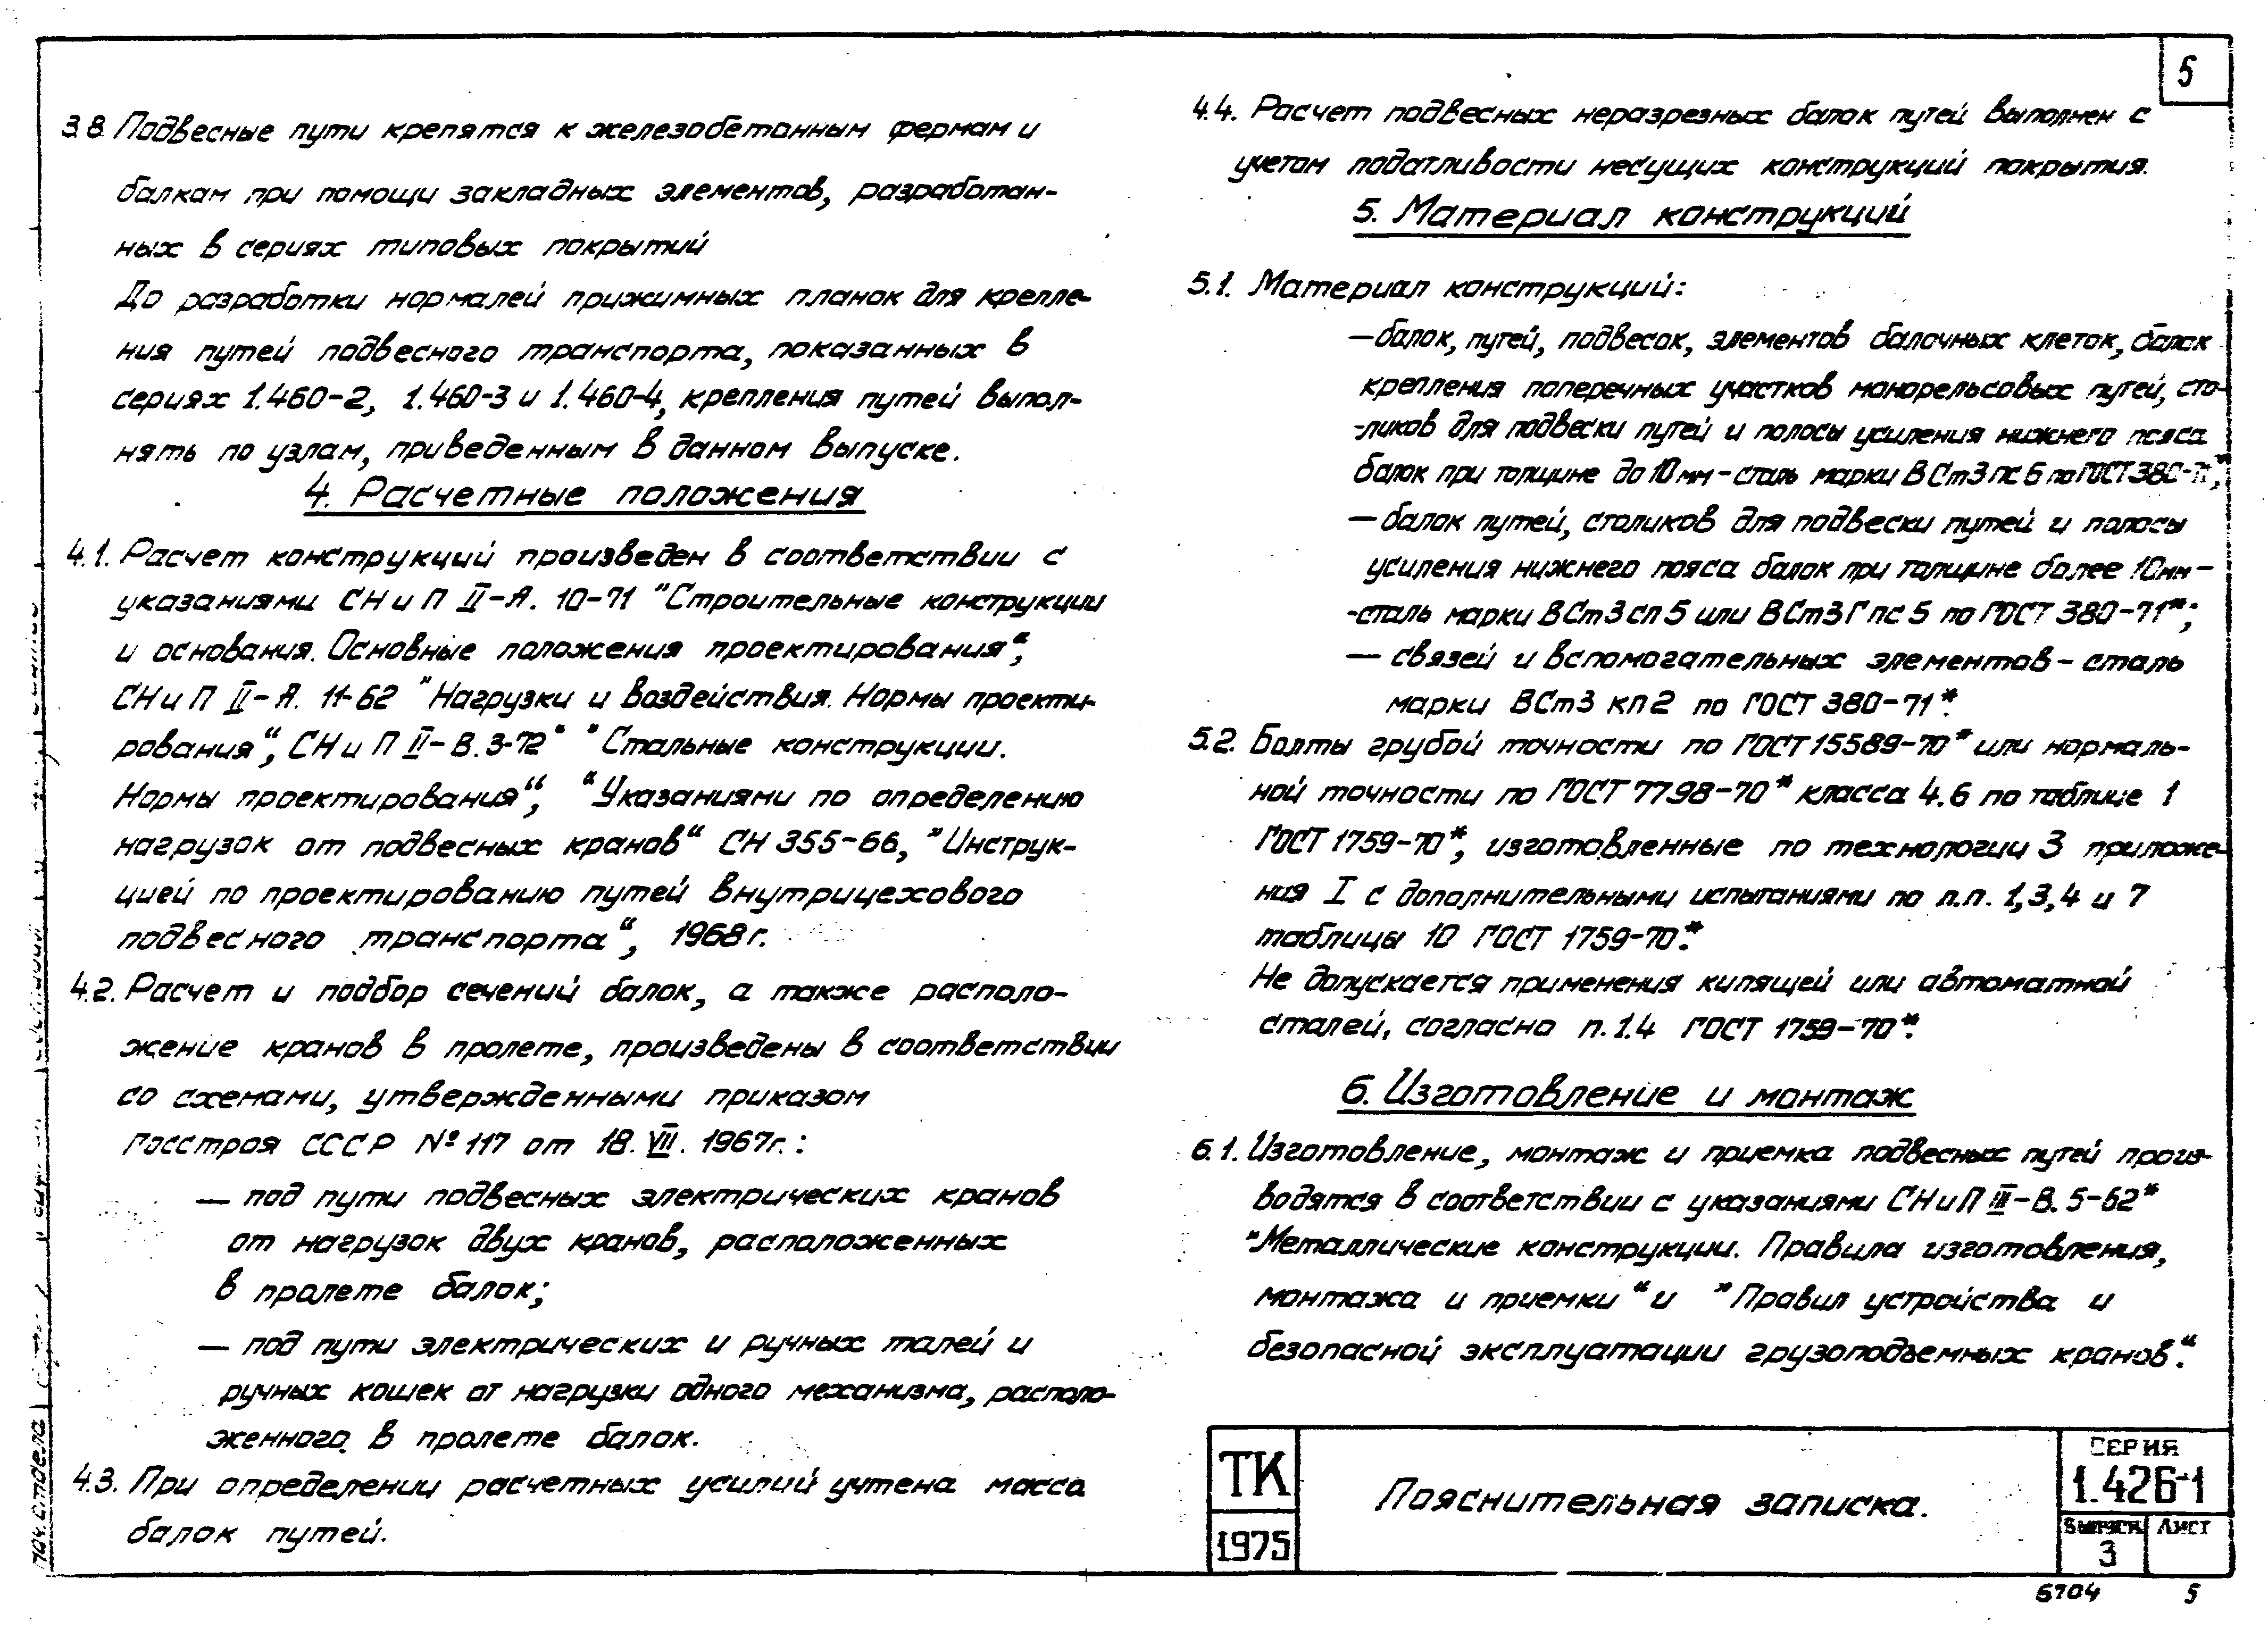 5
3.8. Подвесные пути крепятся к железобетонным фермам и
балкам при помощи закладных элементов, разработан-
ных в сериях типовых покрытий
До разработки нормалей прижимных планок для крепле-
ния путей подвесного транспорта, показанных в
сериях 1.460-2, 1.460-3 и 1.460-4, крепления путей выпол-
нять по узлам, приведенным в данном выпуске.
4. Расчетные положения
4.1. Расчет конструкций произведен в соответствии с
указаниями СНиП II-А. 10-71 "Строительные конструкции
и основания. Основные положения проектирования“,
СНиП II-А. 11-62 "Нагрузки и воздействия. Нормы проекти-
рования“, СНиП II-В. 3-72* "Стальные конструкции.
Нормы проектирования“, “Указаниями по определению
нагрузок от подвесных кранов“ СН 355-66, "Инструк-
цией по проектированию путей внутрицехового
подвесного транспорта“, 1968г.
4.2. Расчет и подбор сечений балок, а также располо-
жение кранов в пролете, произведены в соответствии
со схемами, утвержденными приказом
Госстроя СССР № 117 от 18. VII. 1967г.:
— под пути подвесных электрических кранов
от нагрузок двух кранов, расположенных
в пролете балок;
— под пути электрических и ручных талей и
ручных кошек от нагрузки одного механизма, располо-
женного в пролете балок.
4.3. При определении расчетных усилий учтена масса
балок путей.
4.4. Расчет подвесных неразрезных балок путей выполнен с
учетом податливости несущих конструкций покрытия.
5. Материал конструкций
5.1. Материал конструкций:
—балок, путей, подвесок, элементов балочных клеток, балок
крепления поперечных участков монорельсовых путей, сто-
-ликов для подвески путей и полосы усиления нижнего пояса
балок при толщине до 10мм-сталь марки ВСт3пс6 по ГОСТ 380-71*;
— балок путей, столиков для подвески путей и полосы
усиления нижнего пояса балок при толщине более 10мм-
-сталь марки ВСт3сп5 или ВСт3Гпс5 по ГОСТ 380-71*;
— связей и вспомогательных элементов - сталь
марки ВСт3кп2 по ГОСТ 380-71*.
5.2. Болты грубой точности по ГОСТ 15589-70* или нормаль-
ной точности по ГОСТ 7798-70* класса 4.6 по таблице 1
ГОСТ 1759-70*, изготовленные по технологии 3 приложе-
ния I с дополнительными испытаниями по п.п. 1,3,4 и 7
таблицы 10 ГОСТ 1759-70*.
Не допускается применения кипящей или автоматной
сталей, согласно п. 1.4 ГОСТ 1759-70*.
6. Изготовление и монтаж
6.1. Изготовление, монтаж и приемка подвесных путей произ-
водятся в соответствии с указаниями СНиП III-В. 5-62*
"Металлические конструкции. Правила изготовления,
монтажа и приемки“ и "Правил устройства и
безопасной эксплуатации грузоподъемных кранов“.
ТК
1975
Пояснительная записка.
СЕРИЯ
1.426-1
Выпуск Лист
3
Нач. отдела
6704 5